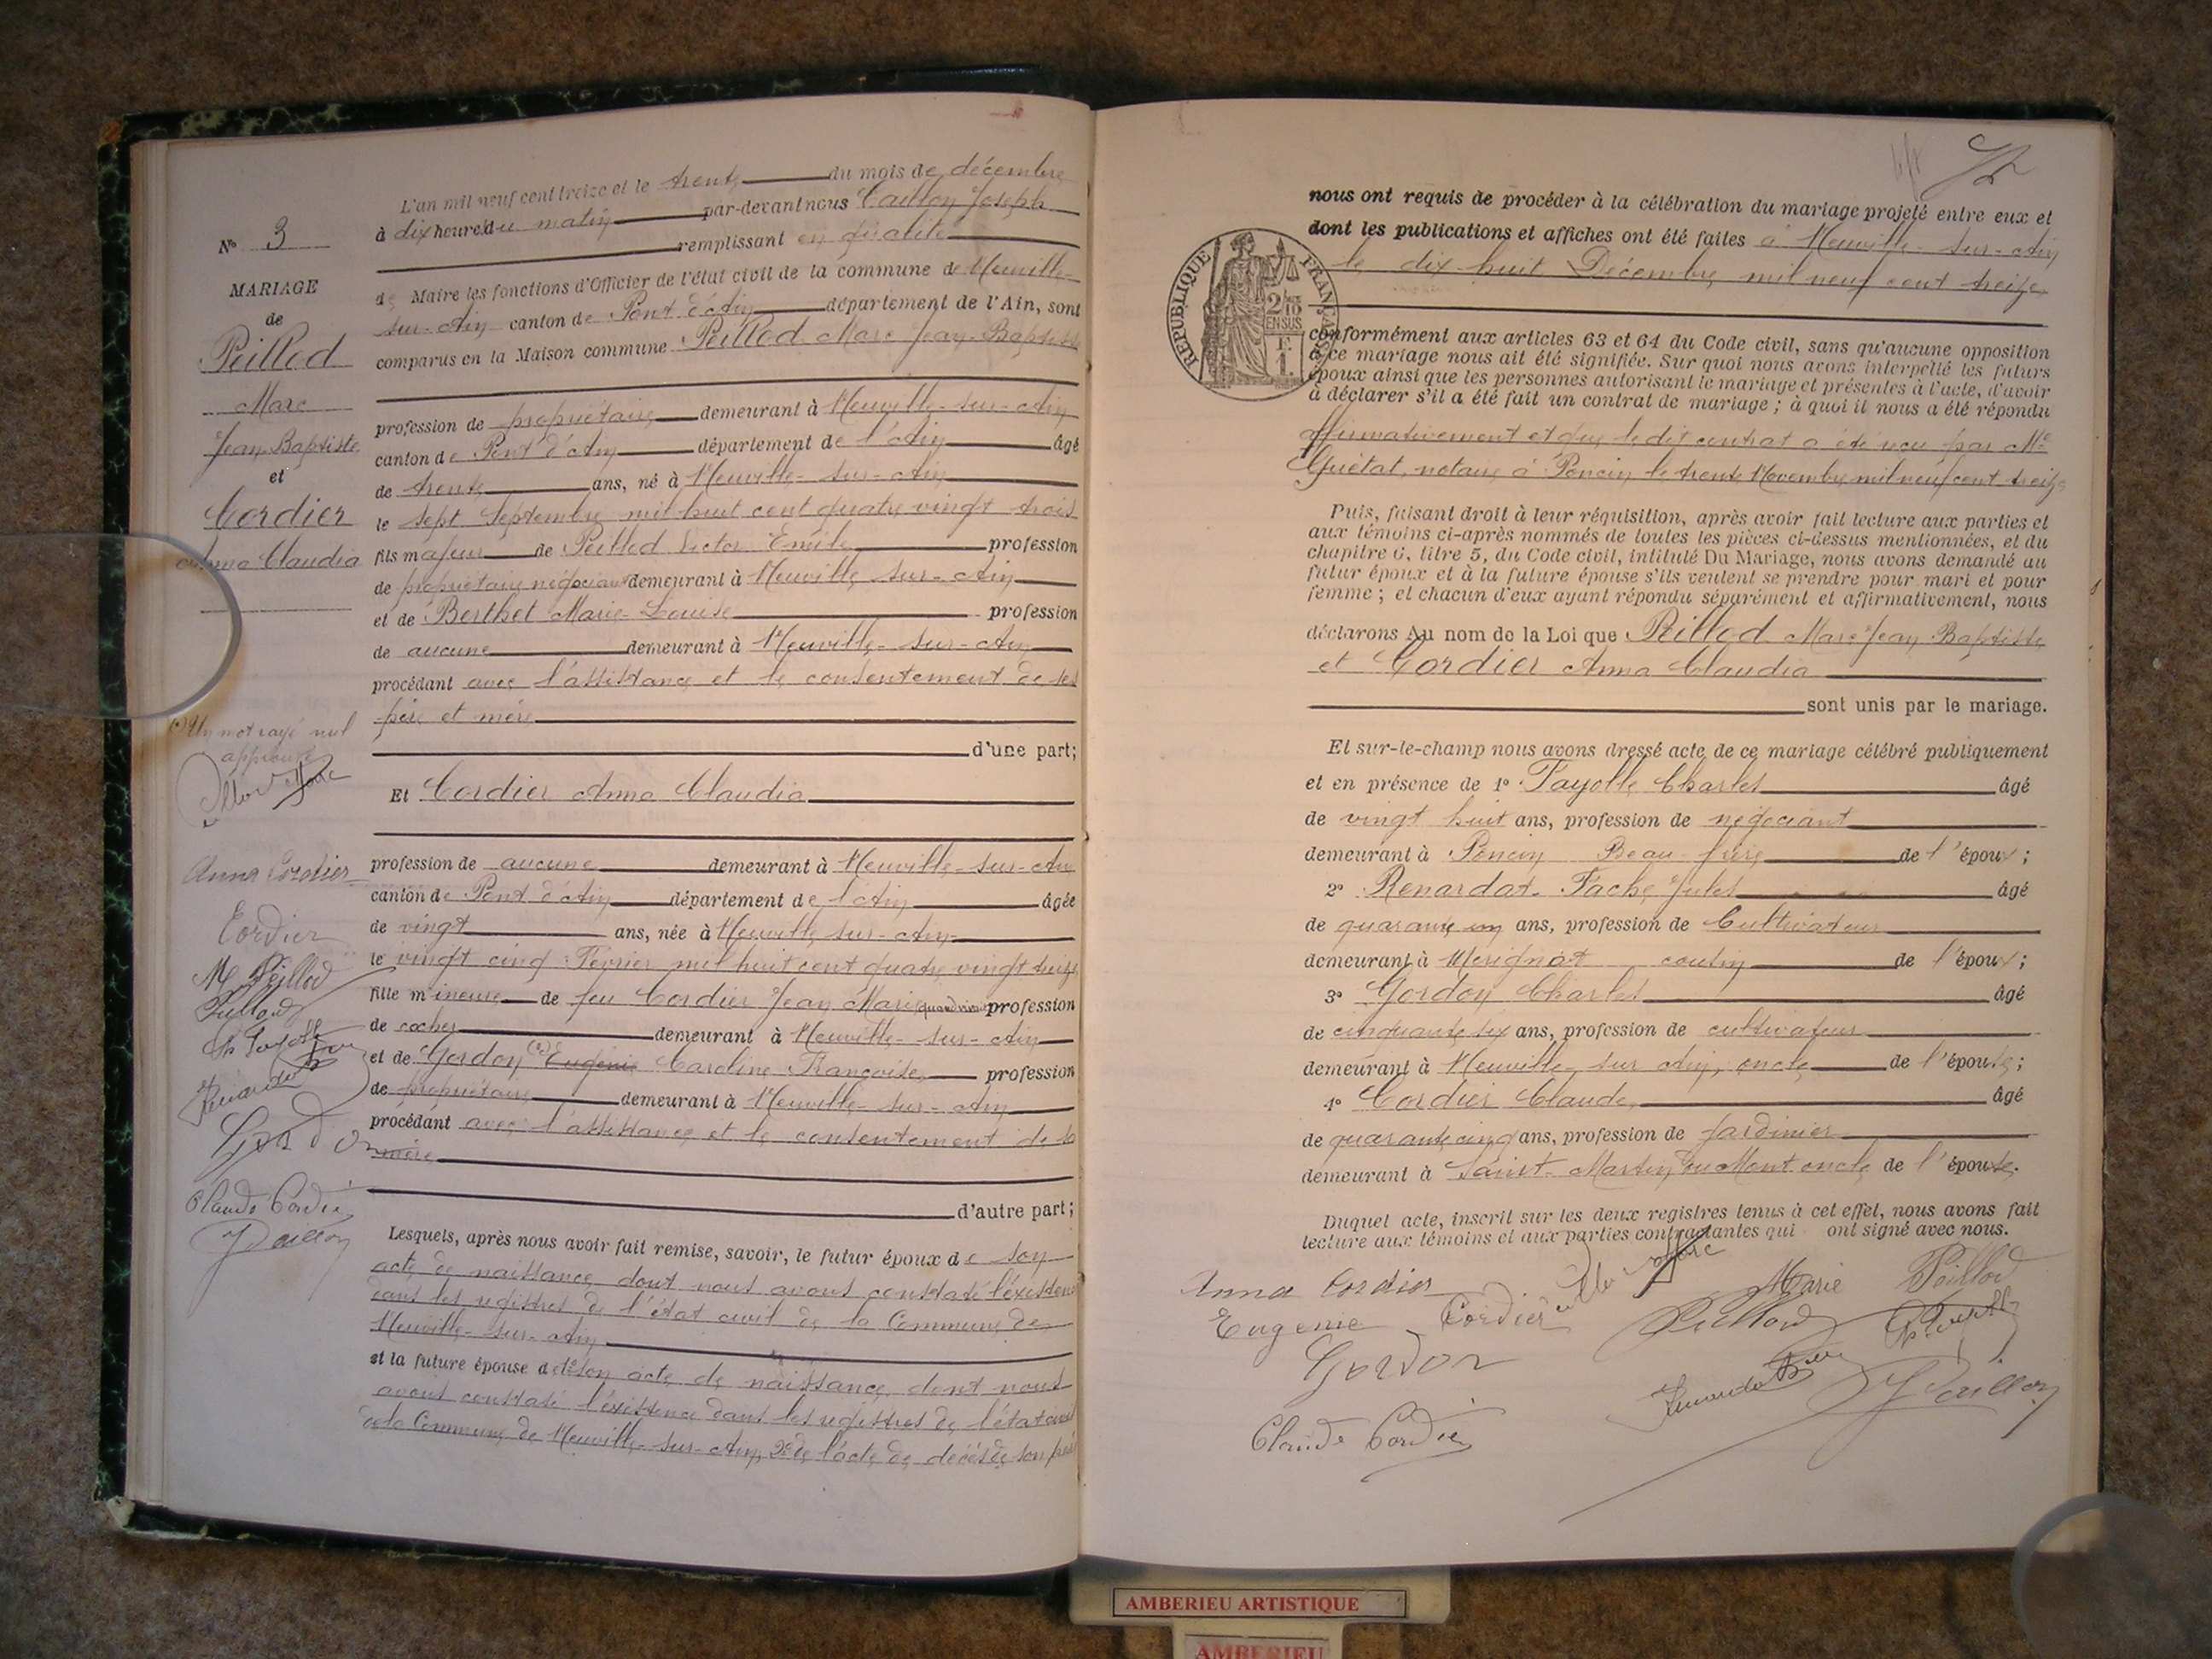 N° 3
MARIAGE
de
Peillod
Marc
Jean Baptiste
et
Cordier
Anna Claudia
Un mot rayé nul
approuvé
Anna Cordier
Cordier
M Peillod
Peillod
Gordon
Claude Cordier
L'an mil neuf cent treize et le trente du mois de décembre
à dix heures du matin par-devant nous Joseph
remplissant en qualité
de Maire les fonctions d'Officier de l'état civil de la commune de Neuville-
sur-Ain canton de Pont d'Ain département de l'Ain, sont
comparus en la Maison commune Peillod Marc Jean-Baptiste
profession de propriétaire demeurant à Neuville-sur-Ain
canton de Pont d'Ain département de l'Ain âgé
de trente ans, né à Neuville-sur-Ain
le sept Septembre mil huit cent quatre vingt trois
fils majeur de Peillod Victor Emile profession
de propriétaire négociant demeurant à Neuville sur-Ain
et de Berthet Marie-Louise profession
de aucune demeurant à Neuville-sur-Ain
procédant avec l'assistance et le consentement de ses
père et mère
d'une part;
Et Cordier Anna Claudia
profession de aucune demeurant à Neuville-sur-Ain
canton de Pont d'Ain département de l'Ain âgée
de vingt ans, née à Neuville sur-Ain
le vingt cinq Février mil huit cent quatre vingt treize
fille mineure de feu Cordier Jean Marie quand vivait profession
de cocher demeurant à Neuville-sur-Ain
et de Gordon Eugénie Caroline Françoise profession
de propriétaire demeurant à Neuville-sur-Ain
procédant avec l'assistance et le consentement de sa
mère
d'autre part;
Lesquels, après nous avoir fait remise, savoir, le futur époux de son
acte de naissance dont nous avons constaté l'existence
dans les registres de l'état civil de la Commune de
Neuville-sur-Ain
et la future épouse de 1° son acte de naissance dont nous
avons constaté l'existence dans les registres de l'état civil
de la Commune de Neuville-sur-Ain, 2° de l'acte de décès de son père
nous ont requis de procéder à la célébration du mariage projeté entre eux et
dont les publications et affiches ont été faites à Neuville-sur-Ain
le dix huit Décembre mil neuf cent treize
RÉPUBLIQUE FRANÇAISE
2/10
EN SUS
F.
1.
conformément aux articles 63 et 64 du Code civil, sans qu'aucune opposition
à ce mariage nous ait été signifiée. Sur quoi nous avons interpellé les futurs
époux ainsi que les personnes autorisant le mariage et présentes à l'acte, d'avoir
à déclarer s'il a été fait un contrat de mariage ; à quoi il nous a été répondu
affirmativement et que le dit contrat a été reçu par Me
Guétat, notaire à Poncin le trente Novembre mil neuf cent treize
Puis, faisant droit à leur réquisition, après avoir fait lecture aux parties et
aux témoins ci-après nommés de toutes les pièces ci-dessus mentionnées, et du
chapitre 6, titre 5, du Code civil, intitulé Du Mariage, nous avons demandé au
futur époux et à la future épouse s'ils veulent se prendre pour mari et pour
femme ; et chacun d'eux ayant répondu séparément et affirmativement, nous
déclarons Au nom de la Loi que Peillod Marc Jean Baptiste
et Cordier Anna Claudia
sont unis par le mariage.
Et sur-le-champ nous avons dressé acte de ce mariage célébré publiquement
et en présence de 1° Fayolle Charles âgé
de vingt huit ans, profession de négociant
demeurant à Poncin Beau-frère de l'époux ;
2° Renardat-Fache Jules âgé
de quarante un ans, profession de Cultivateur
demeurant à Mérignat cousin de l'époux ;
3° Gordon Charles âgé
de cinquante six ans, profession de cultivateur
demeurant à Neuville sur Ain, oncle de l'épouse ;
4° Cordier Claude âgé
de quarante cinq ans, profession de jardinier
demeurant à Saint-Martin du Mont oncle de l'épouse.
Duquel acte, inscrit sur les deux registres tenus à cet effet, nous avons fait
lecture aux témoins et aux parties contractantes qui ont signé avec nous.
Anna Cordier
Marie Peillod
Eugenie Cordier
Peillod
Gordon
Claude Cordier
AMBERIEU ARTISTIQUE
AMBERIEU